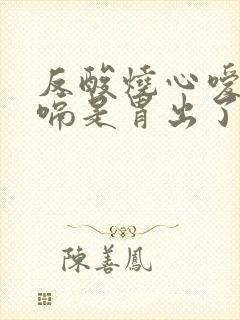 反酸燒心噯
嗝是胃出了
陳善鳳